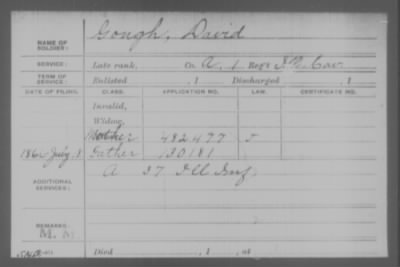 NAME OF SOLDIER: Gough, David
SERVICE: Late rank, Co. A, 1 Reg't Cav
TERM OF SERVICE: Enlisted , 1 Discharged , 1
DATE OF FILING. CLASS. APPLICATION NO. LAW. CERTIFICATE NO.
Invalid,
Widow,
Mother 482477
186 July 8 Father 130181
ADDITIONAL SERVICES: A 37 Ill Inf.
REMARKS:
Died , 1 , at